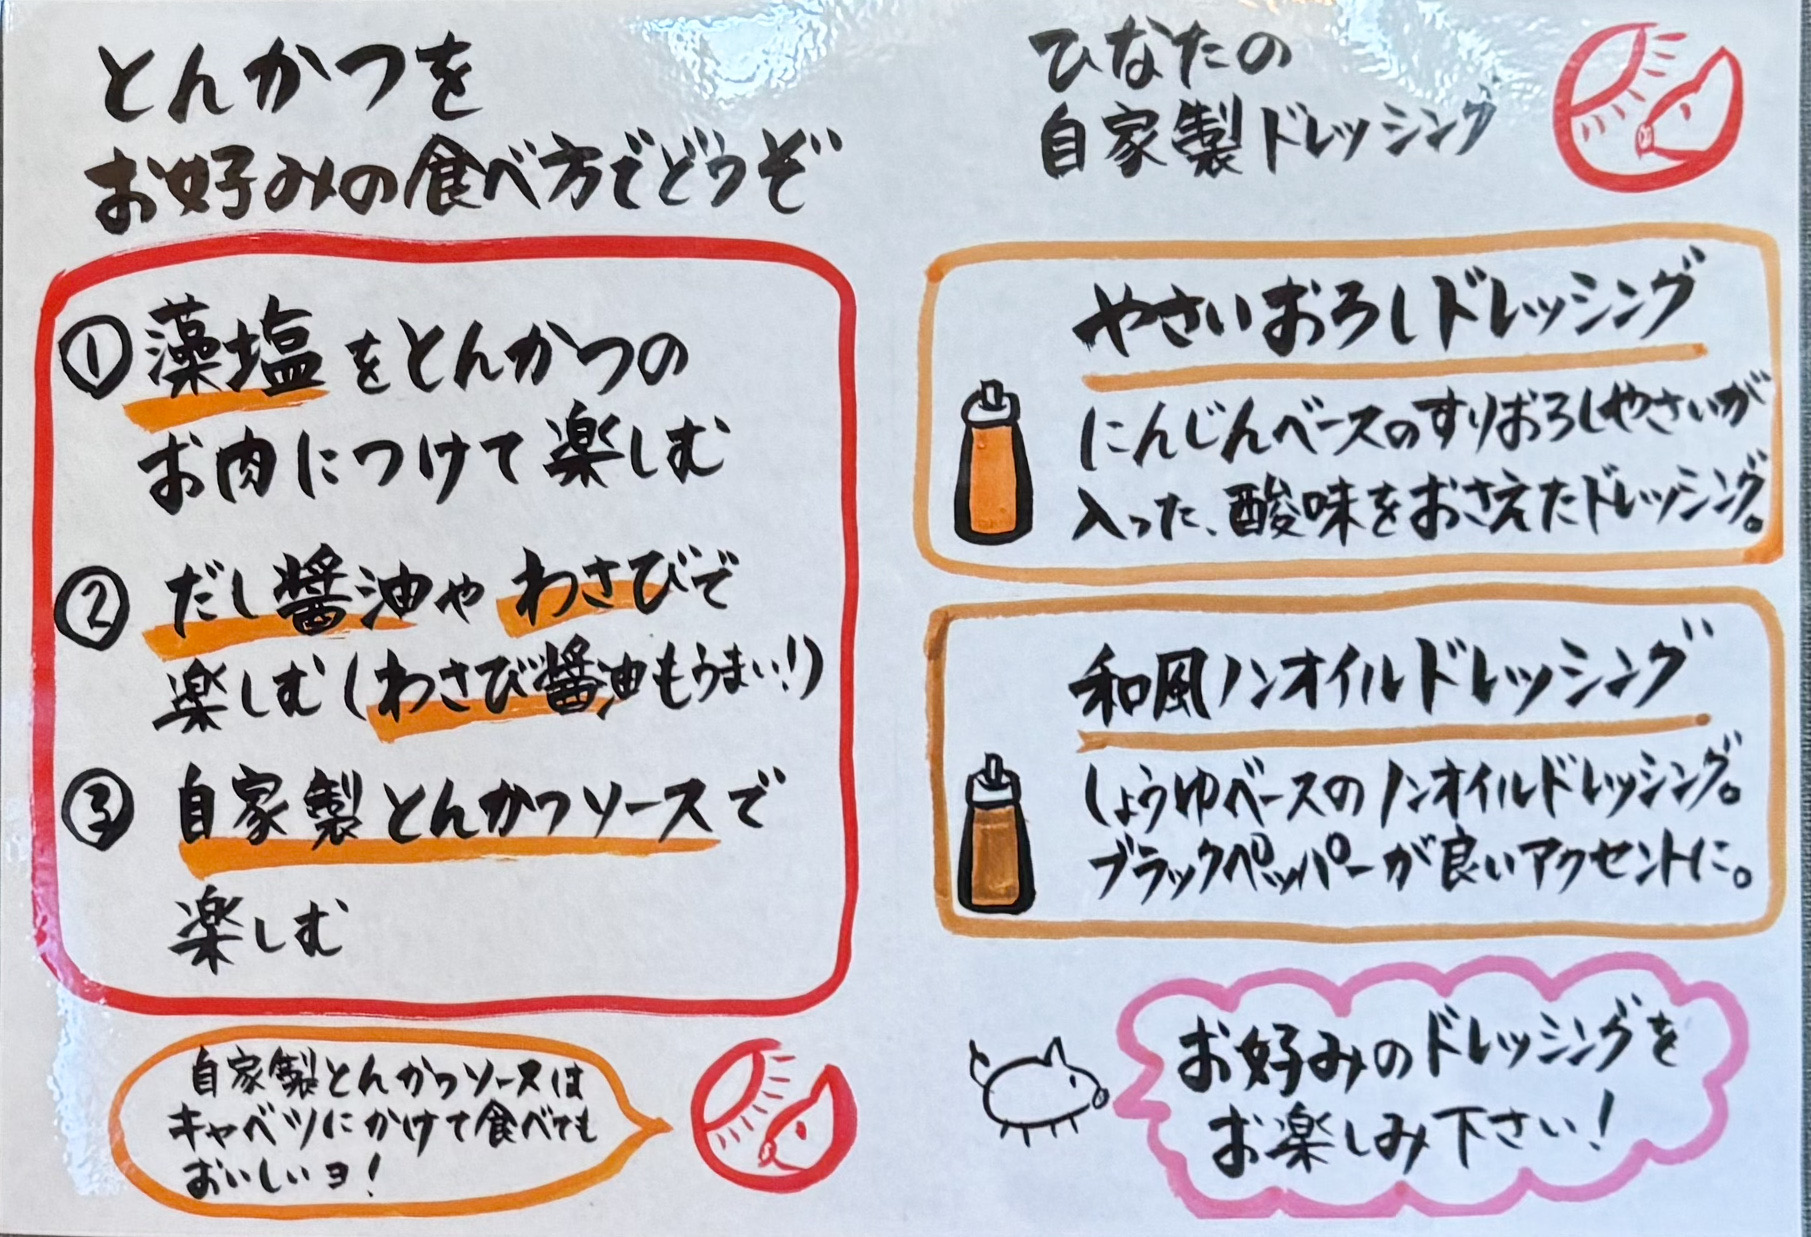 とんかつを
お好みの食べ方でどうぞ
①藻塩をとんかつの
お肉につけて楽しむ
②だし醤油やわさびで
楽しむ(わさび醤油もうまい!)
③自家製とんかつソースで
楽しむ
自家製とんかつソースは
キャベツにかけて食べても
おいしいヨ!
ひなたの
自家製ドレッシング
やさいおろしドレッシング
にんじんベースのすりおろしやさいが
入った、酸味をおさえたドレッシング。
和風ノンオイルドレッシング
しょうゆベースのノンオイルドレッシング。
ブラックペッパーが良いアクセントに。
お好みのドレッシングを
お楽しみ下さい!